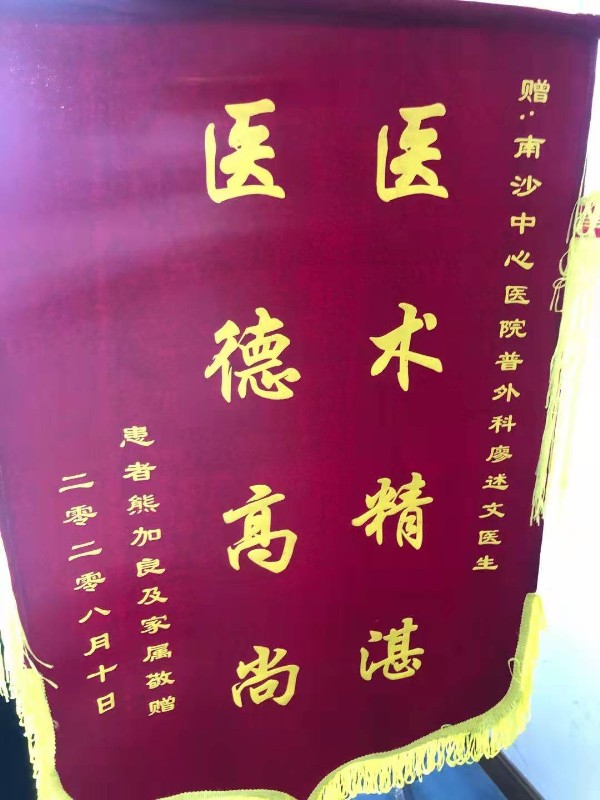 赠:南沙中心医院普外科廖述文医生
医术精湛
医德高尚
患者熊加良及家属敬赠
二零二零八月十日